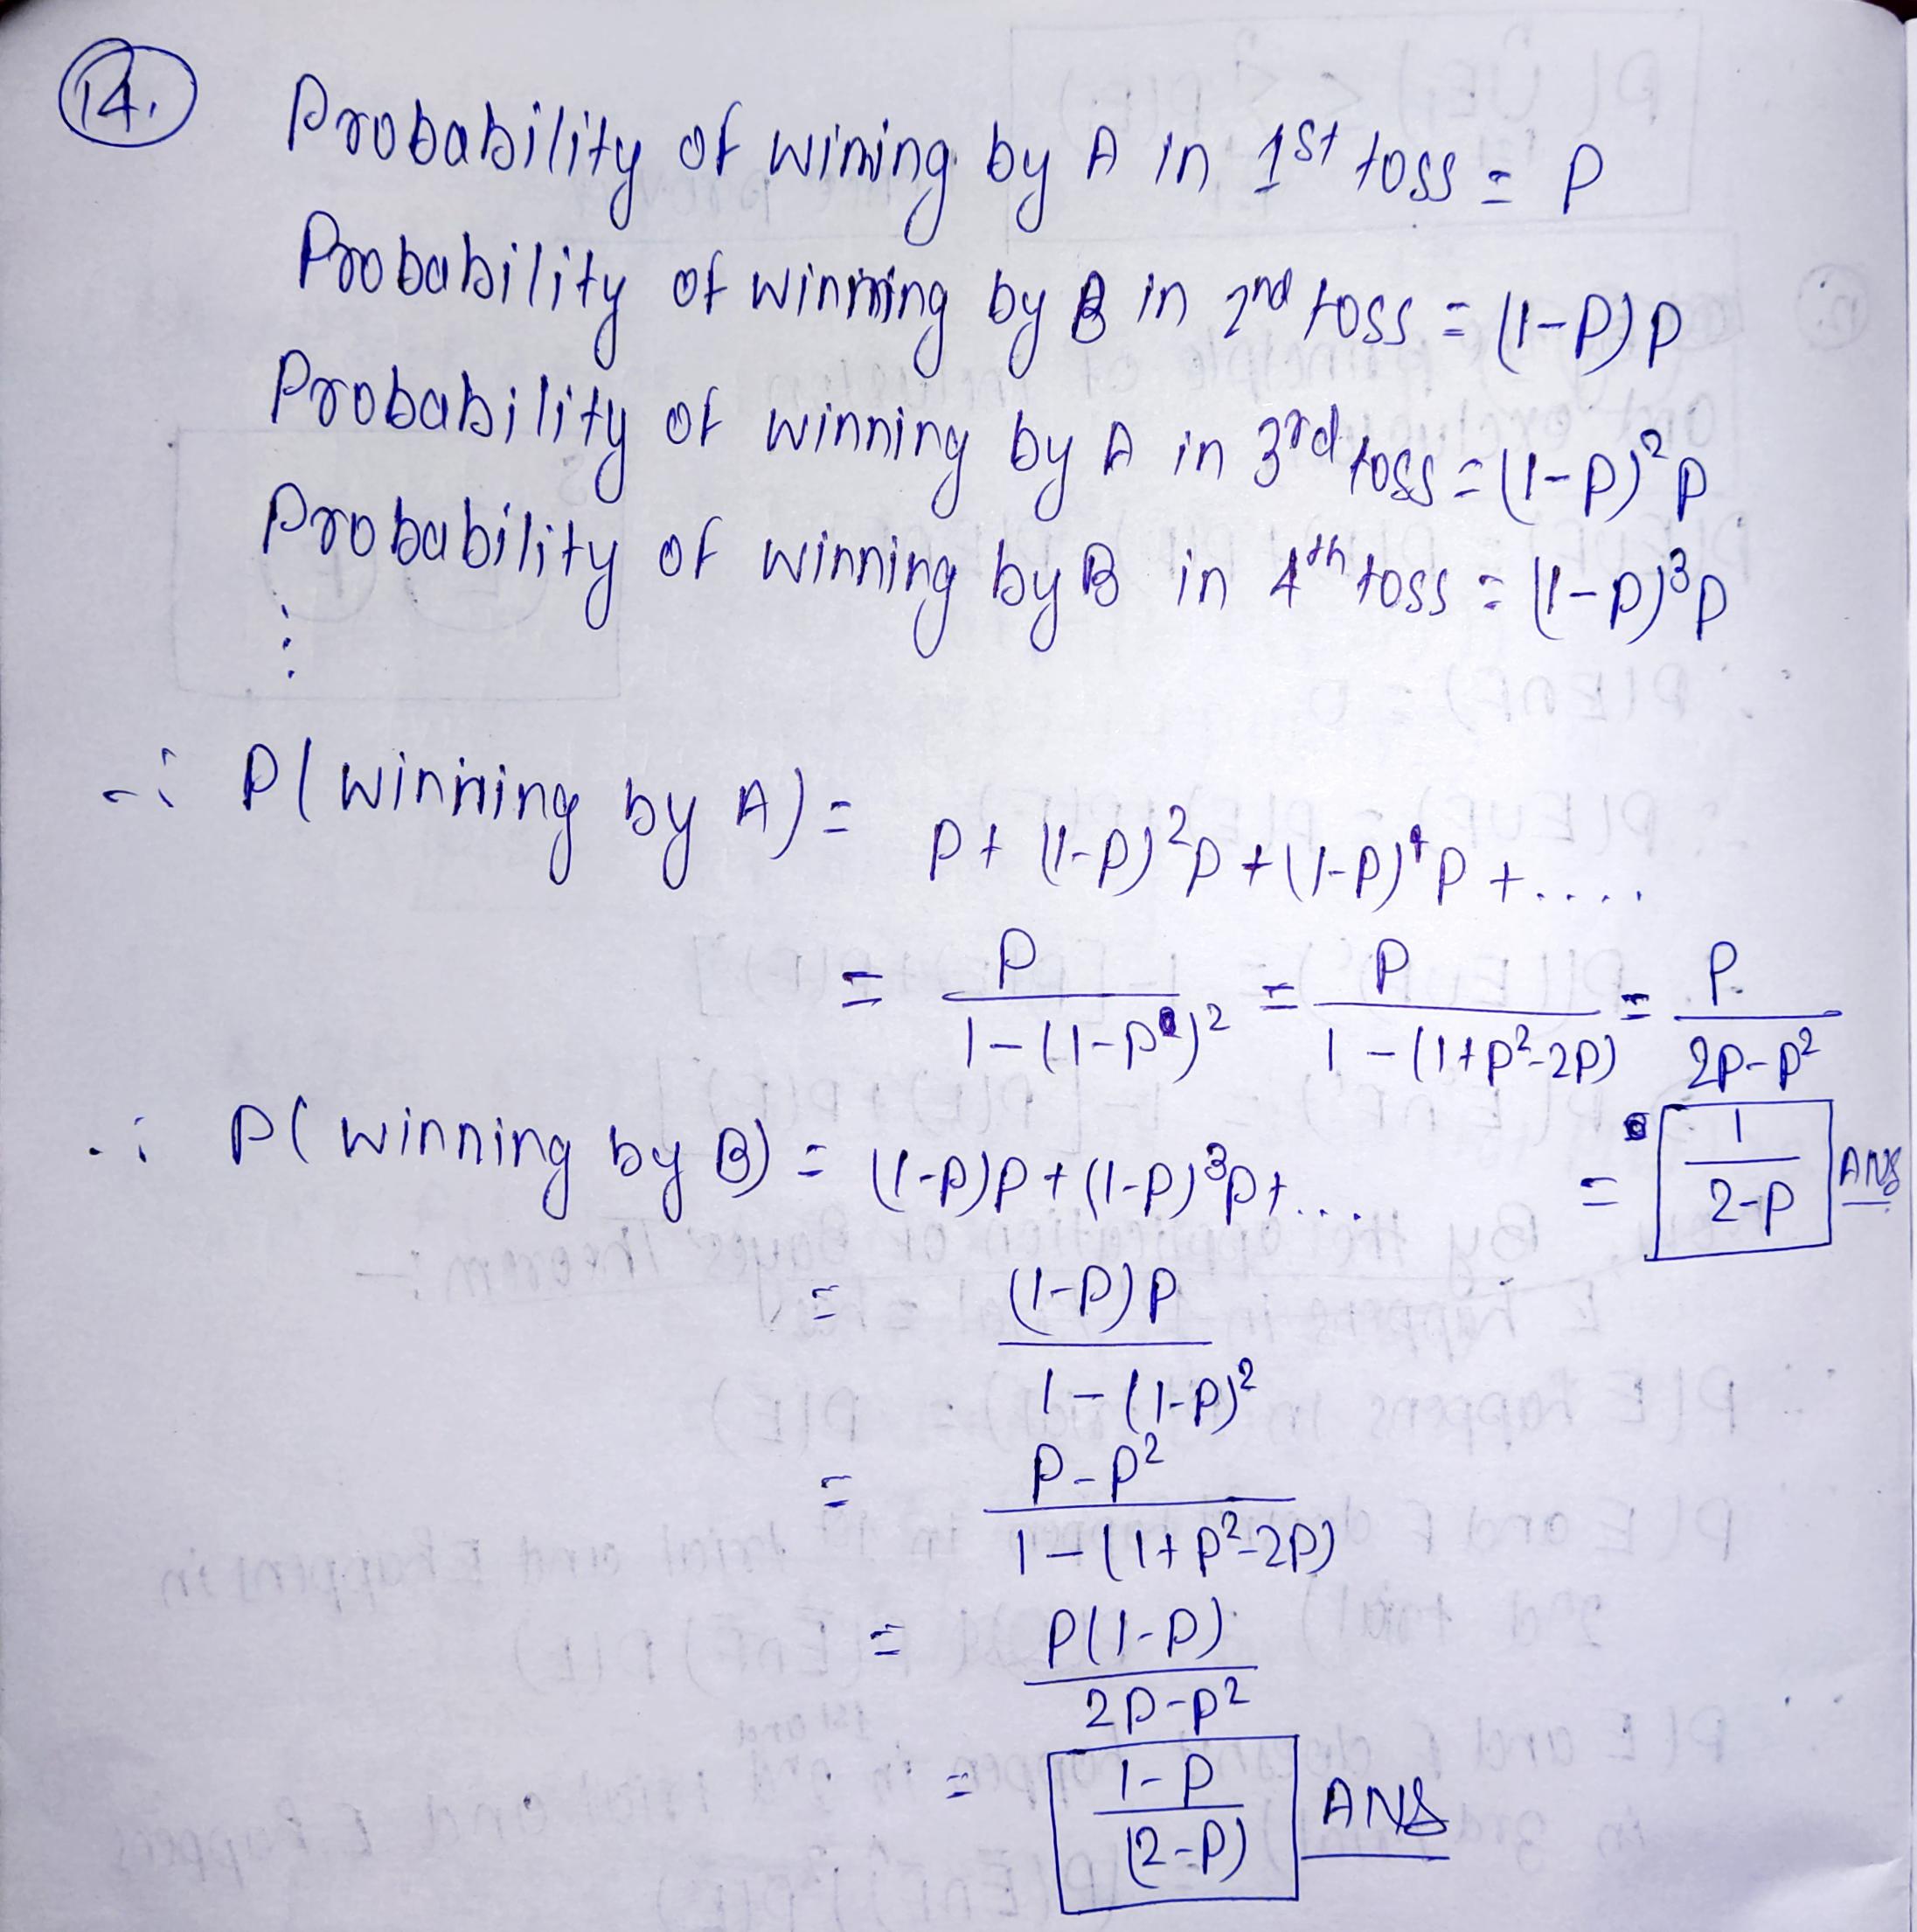 14.
Probability of wining by A in 1st toss = p
Probability of winning by B in 2nd toss = (1-p)p
Probability of winning by A in 3rd toss = (1-p)²p
Probability of winning by B in 4th toss = (1-p)³p
⋮
∴ P(winning by A) = p + (1-p)²p + (1-p)⁴p + ....
= p / 1-(1-p)² = p / 1-(1+p²-2p) = p / 2p-p²
= 1 / 2-p ANS
∴ P(winning by B) = (1-p)p + (1-p)³p + ...
= (1-p)p / 1-(1-p)²
= p-p² / 1-(1+p²-2p)
= p(1-p) / 2p-p²
= 1-p / (2-p) ANS